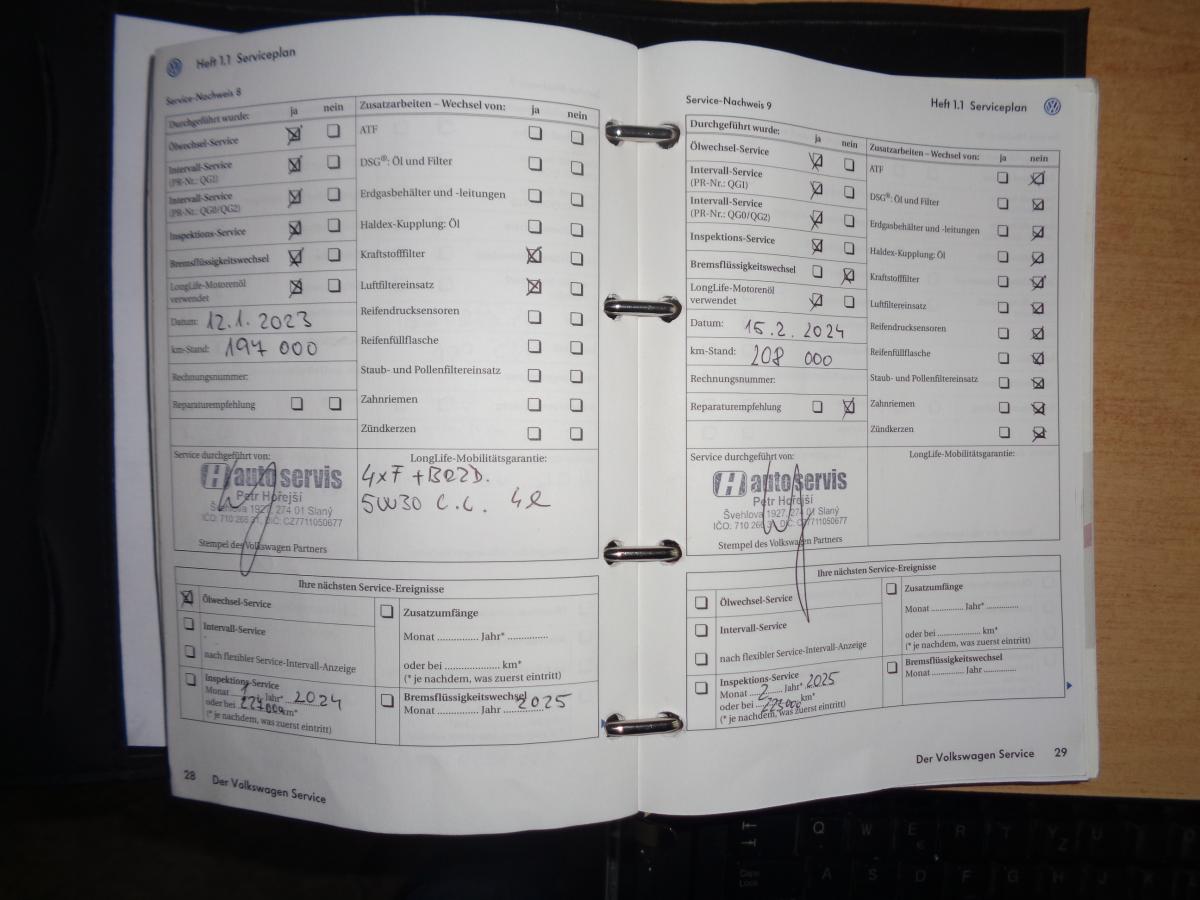 Heft 1.1 Serviceplan
Service-Nachweis 8
Durchgeführt wurde: ja nein
Ölwechsel-Service
Intervall-Service
(PR-Nr.: QG1)
Intervall-Service
(PR-Nr.: QG0/QG2)
Inspektions-Service
Bremsflüssigkeitswechsel
LongLife-Motorenöl
verwendet
Datum: 12.1.2023
km-Stand: 197 000
Rechnungsnummer:
Reparaturempfehlung
Zusatzarbeiten – Wechsel von: ja nein
ATF
DSG®: Öl und Filter
Erdgasbehälter und -leitungen
Haldex-Kupplung: Öl
Kraftstofffilter
Luftfiltereinsatz
Reifendrucksensoren
Reifenfüllflasche
Staub- und Pollenfiltereinsatz
Zahnriemen
Zündkerzen
Service durchgeführt von:
H autoservis
Petr Hořejší
Švehlova 1927, 274 01 Slaný
IČO: 710 266 31, DIČ: CZ7711050677
Stempel des Volkswagen Partners
LongLife-Mobilitätsgarantie:
4xF + BRZD.
5W30 C.C. 4l
Ihre nächsten Service-Ereignisse
Ölwechsel-Service
Intervall-Service
nach flexibler Service-Intervall-Anzeige
Inspektions-Service
Monat 1 Jahr* 2024
oder bei 227000 km*
(* je nachdem, was zuerst eintritt)
Zusatzumfänge
Monat .............. Jahr* ..............
oder bei .................... km*
(* je nachdem, was zuerst eintritt)
Bremsflüssigkeitswechsel
Monat .............. Jahr 2025
28 Der Volkswagen Service
Heft 1.1 Serviceplan
Service-Nachweis 9
Durchgeführt wurde: ja nein
Ölwechsel-Service
Intervall-Service
(PR-Nr.: QG1)
Intervall-Service
(PR-Nr.: QG0/QG2)
Inspektions-Service
Bremsflüssigkeitswechsel
LongLife-Motorenöl
verwendet
Datum: 15.2.2024
km-Stand: 208 000
Rechnungsnummer:
Reparaturempfehlung
Zusatzarbeiten – Wechsel von: ja nein
ATF
DSG®: Öl und Filter
Erdgasbehälter und -leitungen
Haldex-Kupplung: Öl
Kraftstofffilter
Luftfiltereinsatz
Reifendrucksensoren
Reifenfüllflasche
Staub- und Pollenfiltereinsatz
Zahnriemen
Zündkerzen
Service durchgeführt von:
H autoservis
Petr Hořejší
Švehlova 1927, 274 01 Slaný
IČO: 710 266 31, DIČ: CZ7711050677
Stempel des Volkswagen Partners
LongLife-Mobilitätsgarantie:
Ihre nächsten Service-Ereignisse
Ölwechsel-Service
Intervall-Service
nach flexibler Service-Intervall-Anzeige
Inspektions-Service
Monat 2 Jahr* 2025
oder bei 223000 km*
(* je nachdem, was zuerst eintritt)
Zusatzumfänge
Monat .............. Jahr* ..............
oder bei .................... km*
(* je nachdem, was zuerst eintritt)
Bremsflüssigkeitswechsel
Monat .............. Jahr ..............
Der Volkswagen Service 29
Q W E R T Y Z U
€
Caps Lock A S D F G H J